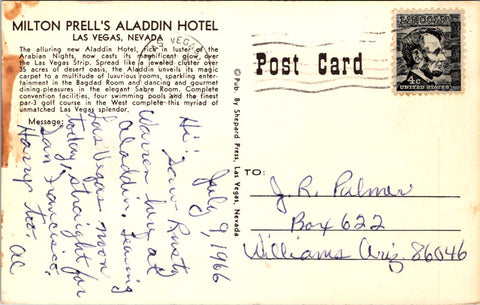 MILTON PRELL'S ALADDIN HOTEL
LAS VEGAS, NEVADA
The alluring new Aladdin Hotel, rich in luster of the
Arabian Nights, now casts its magnificent glow over
the Las Vegas Strip. Spread like a jeweled cluster over
35 acres of desert oasis, the Aladdin unveils its magic
carpet to a multitude of luxurious rooms, sparkling enter-
tainment in the Bagdad Room and dancing and gourmet
dining-pleasures in the elegant Sabre Room. Complete
convention facilities, four swimming pools and the finest
par-3 golf course in the West complete this myriad of
unmatched Las Vegas splendor.
Message:
July 9, 1966
Hi! Saw Rusty
Warren here at
Aladdin. Leaving
Las Vegas noon
today, straight for
San Francisco.
Harry too. al
© Pub. By Shepard Press, Las Vegas, Nevada
VEGAS
Post Card
4c
UNITED STATES
TO:
J. R. Palmer
Box 622
Williams Ariz. 86046